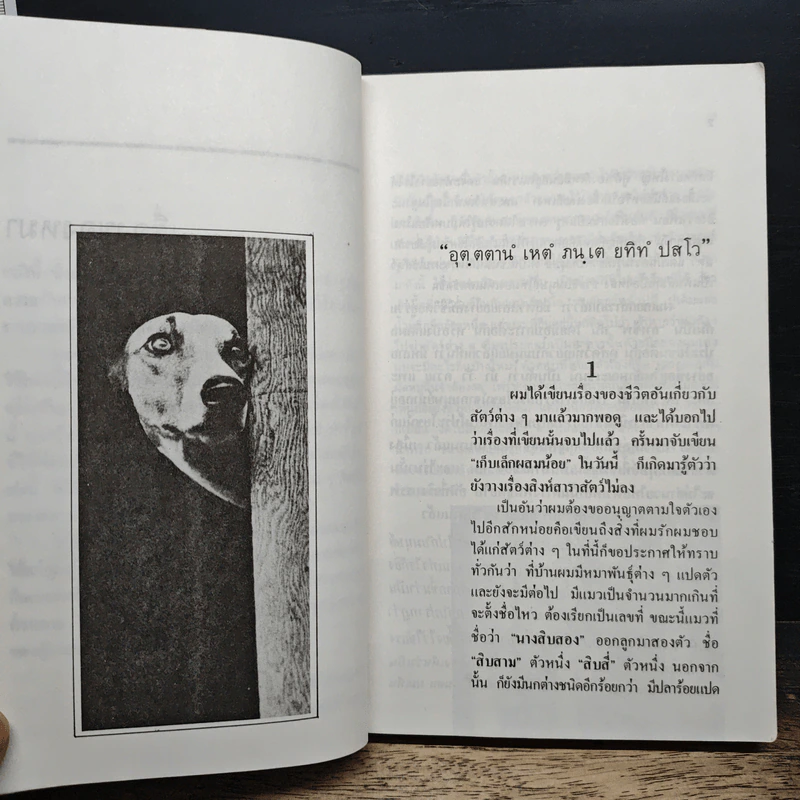 “อุตฺตตานํ เหตํ ภนฺเต ยทิทํ ปสโว”
1
ผมได้เขียนเรื่องของชีวิตอันเกี่ยวกับ
สัตว์ต่าง ๆ มาแล้วมากพอดู และได้บอกไป
ว่าเรื่องที่เขียนนั้นจบไปแล้ว ครั้นมาจับเขียน
“เก็บเล็กผสมน้อย” ในวันนี้ ก็เกิดมารู้ตัวว่า
ยังวางเรื่องสิงห์สาราสัตว์ไม่ลง
เป็นอันว่าผมต้องขออนุญาตตามใจตัวเอง
ไปอีกสักหน่อยคือเขียนถึงสิ่งที่ผมรักผมชอบ
ได้แก่สัตว์ต่าง ๆ ในที่นี้ก็ขอประกาศให้ทราบ
ทั่วกันว่า ที่บ้านผมมีหมาพันธุ์ต่าง ๆ แปดตัว
และยังจะมีต่อไป มีแมวเป็นจำนวนมากเกินที่
จะตั้งชื่อไหว ต้องเรียกเป็นเลขที่ ขณะนี้แมวที่
ชื่อว่า “นางสิบสอง” ออกลูกมาสองตัว ชื่อ
“สิบสาม” ตัวหนึ่ง “สิบสี่” ตัวหนึ่ง นอกจาก
นั้น ก็ยังมีนกต่างชนิดอีกร้อยกว่า มีปลาร้อยแปด